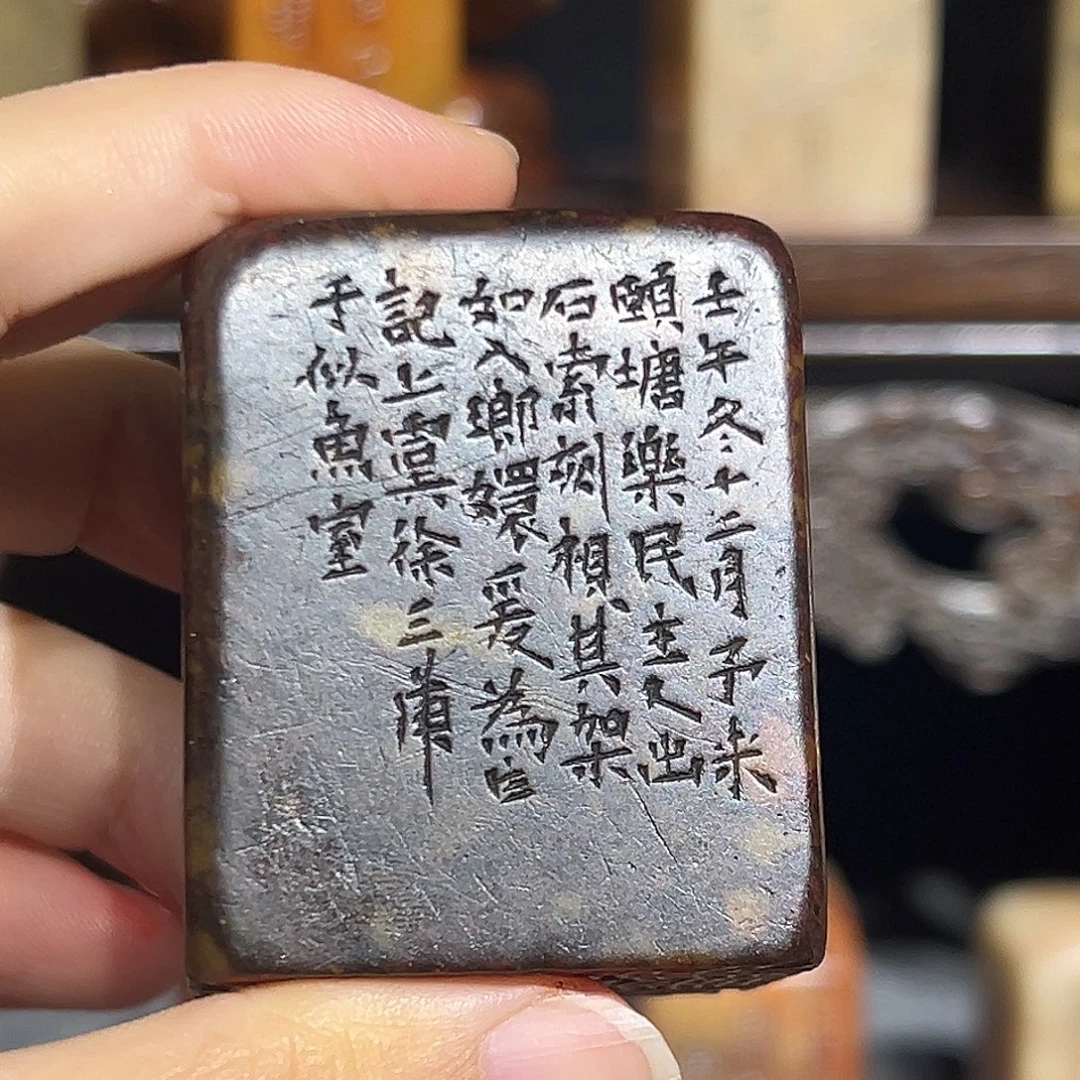 壬午冬十二月予来
頤塘樂民主人出
石索刻視其架
如入瑯嬛爰為之
記上虞徐三庚
于似魚室